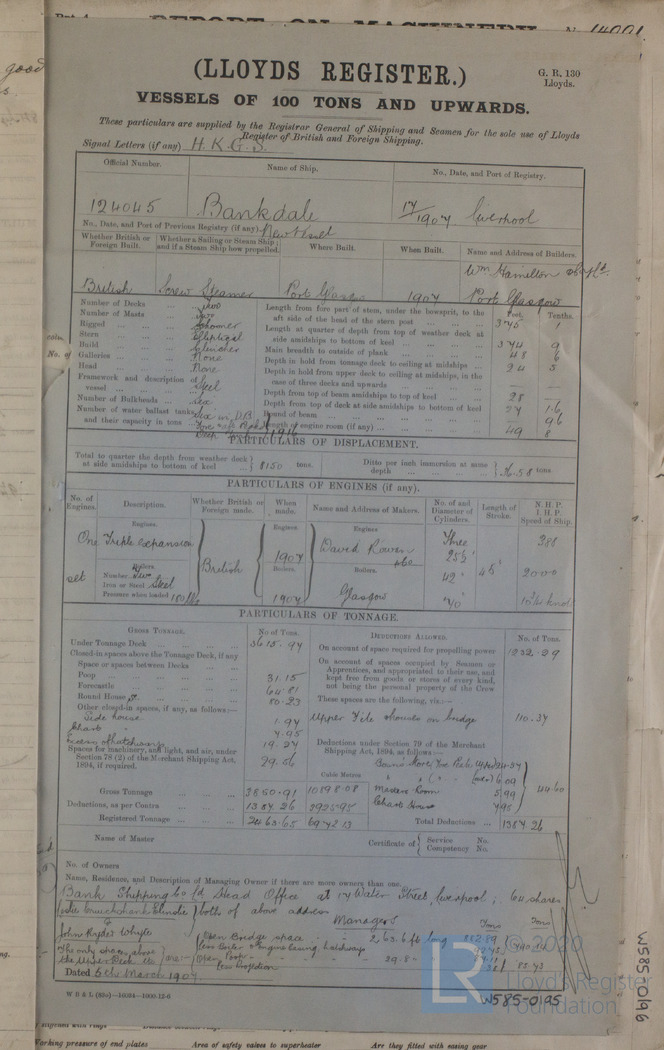 REPORT ON MACHINERY No. 14091
good
(LLOYDS REGISTER.)
G. R. 130
Lloyds.
VESSELS OF 100 TONS AND UPWARDS.
These particulars are supplied by the Registrar General of Shipping and Seamen for the sole use of Lloyds
Register of British and Foreign Shipping.
Signal Letters (if any) H.K.G.S.
Official Number. Name of Ship. No., Date, and Port of Registry.
124045 Bankdale 17/1907 Liverpool
No., Date, and Port of Previous Registry (if any) New Vessel
Whether British or Foreign Built. Whether a Sailing or Steam Ship; and if a Steam Ship how propelled. Where Built. When Built. Name and Address of Builders.
Wm Hamilton
British Screw Steamer Port Glasgow 1907 Port Glasgow
Number of Decks Two
Number of Masts Two
Rigged Schooner
Stern Elliptical
Build Clencher
Galleries None
Head None
Framework and description of vessel Steel
Number of Bulkheads Six
Number of water ballast tanks, and their capacity in tons Six in D.B.
Feet. Tenths.
Length from fore part of stem, under the bowsprit, to the aft side of the head of the stern post 375 1
Length at quarter of depth from top of weather deck at side amidships to bottom of keel 374 9
Main breadth to outside of plank 48 6
Depth in hold from tonnage deck to ceiling at midships 24 5
Depth in hold from upper deck to ceiling at midships, in the case of three decks and upwards
Depth from top of beam amidships to top of keel 28
Depth from top of deck at side amidships to bottom of keel 27
Round of beam
Length of engine room (if any) 49 8
PARTICULARS OF DISPLACEMENT.
Total to quarter the depth from weather deck at side amidships to bottom of keel 8150 tons.
Ditto per inch immersion at same depth 36.58 tons
PARTICULARS OF ENGINES (if any).
No. of Engines. Description. Whether British or Foreign made. When made. Name and Address of Makers. No. of and Diameter of Cylinders. Length of Stroke. N.H.P. I.H.P. Speed of Ship.
Engines. Engines. Engines
One Triple expansion British 1907 David Rowan &Co Three 25½" 388
Boilers. Boilers. Boilers.
set Number Two 42" 48" 2000
Iron or Steel Steel
Pressure when loaded 180 lbs 1907 Glasgow 70" 10½ knots
PARTICULARS OF TONNAGE.
GROSS TONNAGE. No. of Tons.
Under Tonnage Deck 3615.94
Closed-in spaces above the Tonnage Deck, if any
Space or spaces between Decks
Poop 31.15
Forecastle 64.81
Round House 80.23
Other closed-in spaces, if any, as follows:—
Side house 1.97
Chart 7.95
Excess of hatchways 19.27
Spaces for machinery, and light, and air, under Section 78 (2) of the Merchant Shipping Act, 1894, if required. 29.56
Cubic Metres
Gross Tonnage 3850.91 10898.08
Deductions, as per Contra 1387.26 3925.95
Registered Tonnage 2463.65 6972.13
DEDUCTIONS ALLOWED. No. of Tons.
On account of space required for propelling power 1232.29
On account of spaces occupied by Seamen or Apprentices, and appropriated to their use, and kept free from goods or stores of every kind, not being the personal property of the Crew
These spaces are the following, viz:—
Upper Side houses on bridge 110.37
Deductions under Section 79 of the Merchant Shipping Act, 1894, as follows:—
Boasn's Stores Fore Peak 24.57
6.09
Masters Room 5.99
Chart House 7.95
44.60
Total Deductions 1387.26
Name of Master Certificate of Service No. Competency No.
No. of Owners
Name, Residence, and Description of Managing Owner if there are more owners than one.
Bank Shipping Co Ld Head Office at 17 Water Street, Liverpool; 64 shares
both of above address
John Ryder Whyte Managers
Open Bridge space
The only space above the Upper Deck
Open Poop 29.8
Dated 6th March 1907
W B & L (82w)—16284—1000-12-6
© 2020
Lloyd's Register
Foundation
LR
W585-0195
W585-0196
Working pressure of end plates Area of safety valves to superheater Are they fitted with easing gear